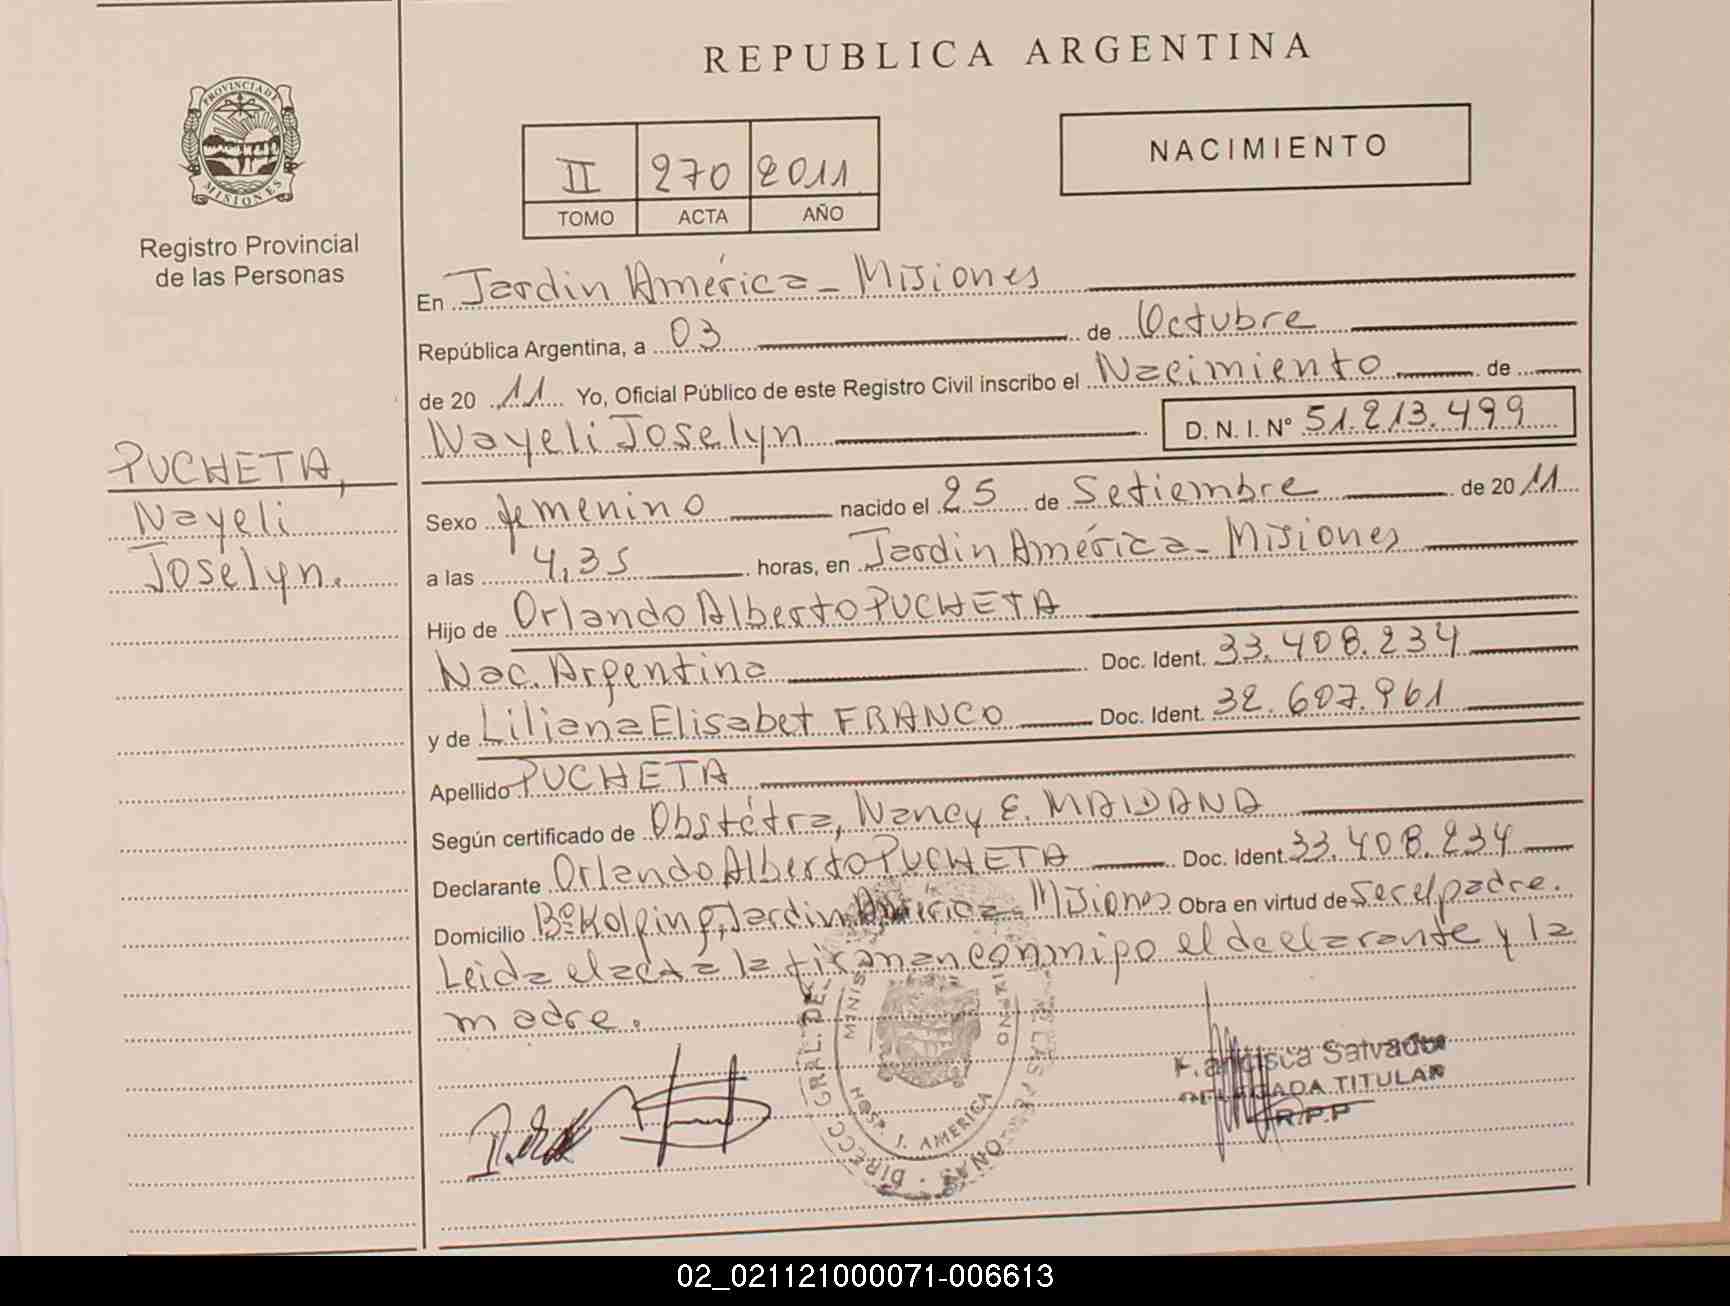 REPUBLICA ARGENTINA
PROVINCIA DE
MISIONES
Registro Provincial
de las Personas
NACIMIENTO
II 270 2011
TOMO ACTA AÑO
En Jardin América - Misiones
República Argentina, a 03 de Octubre
de 20 11 Yo, Oficial Público de este Registro Civil inscribo el Nacimiento de
Nayeli Joselyn D. N. I. N° 51.213.499
PUCHETA,
Nayeli
Joselyn.
Sexo femenino nacido el 25 de Setiembre de 20 11
a las 4,35 horas, en Jardin América - Misiones
Hijo de Orlando Alberto PUCHETA
Nac. Argentina Doc. Ident. 33.408.234
y de Liliana Elisabet FRANCO Doc. Ident. 32.607.961
Apellido PUCHETA
Según certificado de Obstétra, Nancy E. MAIDANA
Declarante Orlando Alberto PUCHETA Doc. Ident. 33.408.234
Domicilio B° Kolping, Jardin América - Misiones Obra en virtud de ser el padre.
Leida el acta la firman conmigo el declarante y la
madre.
DIRECC. GRAL. DE
MINIS
HOSP. J. AMERICA
Francisca Salvador
DELEGADA TITULAR
R.P.P
02_021121000071-006613